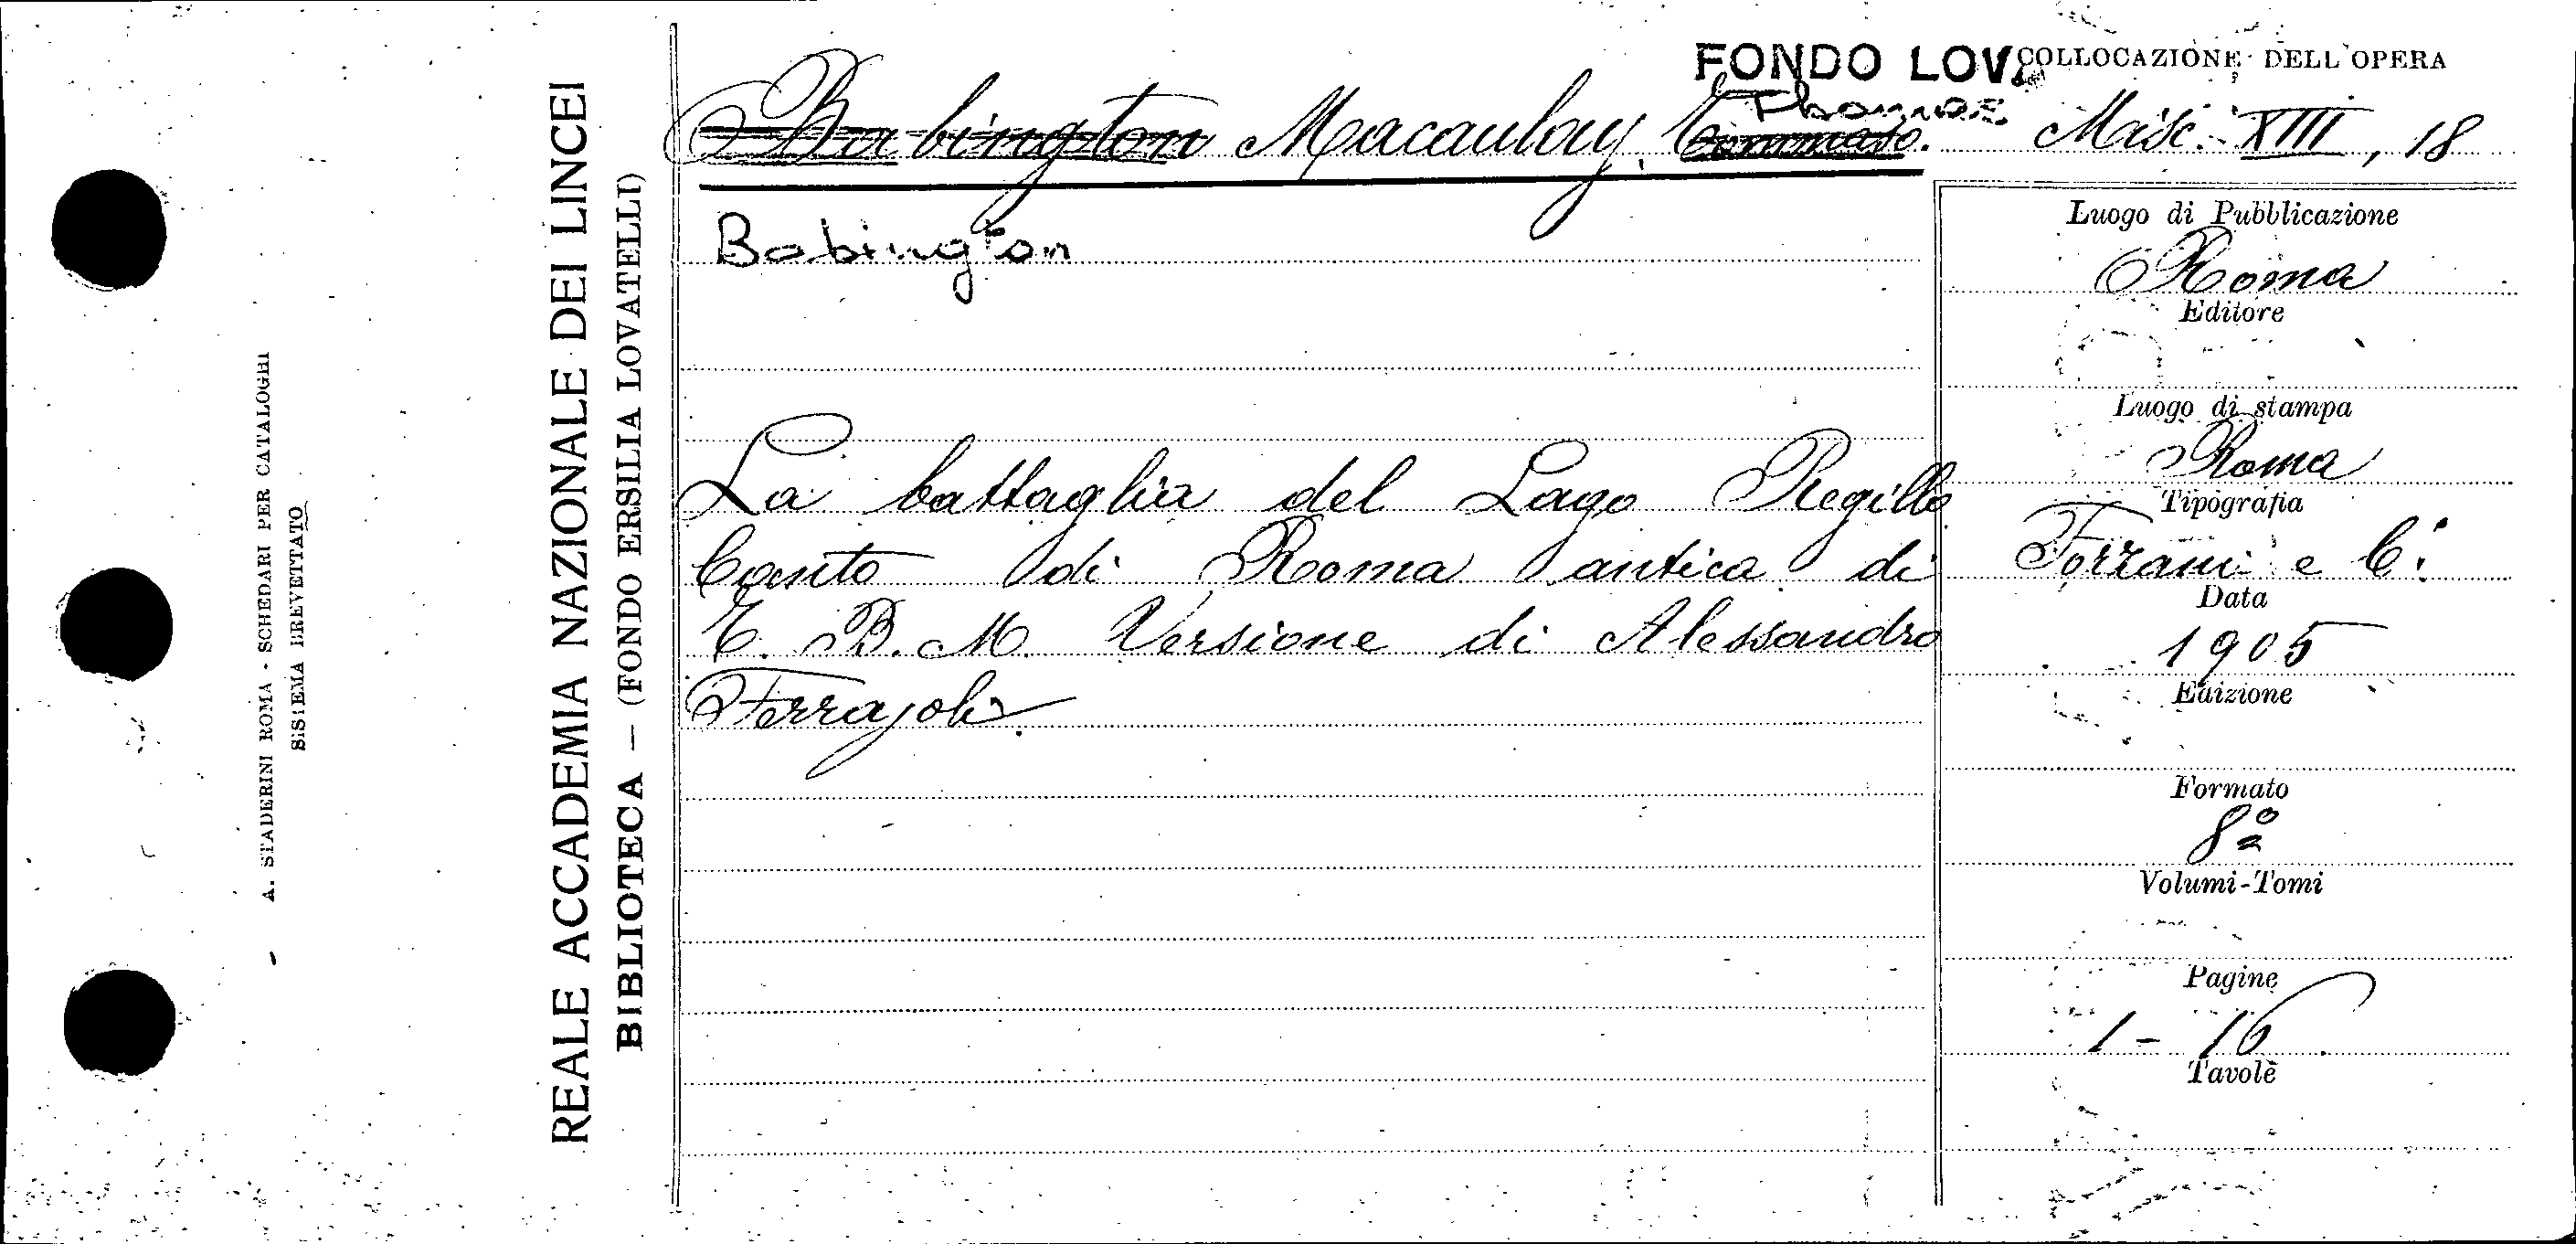 FONDO LOV.
COLLOCAZIONE DELL'OPERA
Babington Macaulay, Tommaso. Thomas
Misc. XIII, 18
Babington
La battaglia del Lago Regillo
Canto di Roma antica di
T. B. M. Versione di Alessandro
Ferrajoli.
Luogo di Pubblicazione
Roma
Editore
Luogo di stampa
Roma
Tipografia
Forzani e C.i
Data
1905
Edizione
Formato
8º
Volumi-Tomi
Pagine
1 - 16
Tavole
REALE ACCADEMIA NAZIONALE DEI LINCEI
BIBLIOTECA — (FONDO ERSILIA LOVATELLI)
A. STADERINI ROMA - SCHEDARI PER CATALOGHI
SISTEMA BREVETTATO